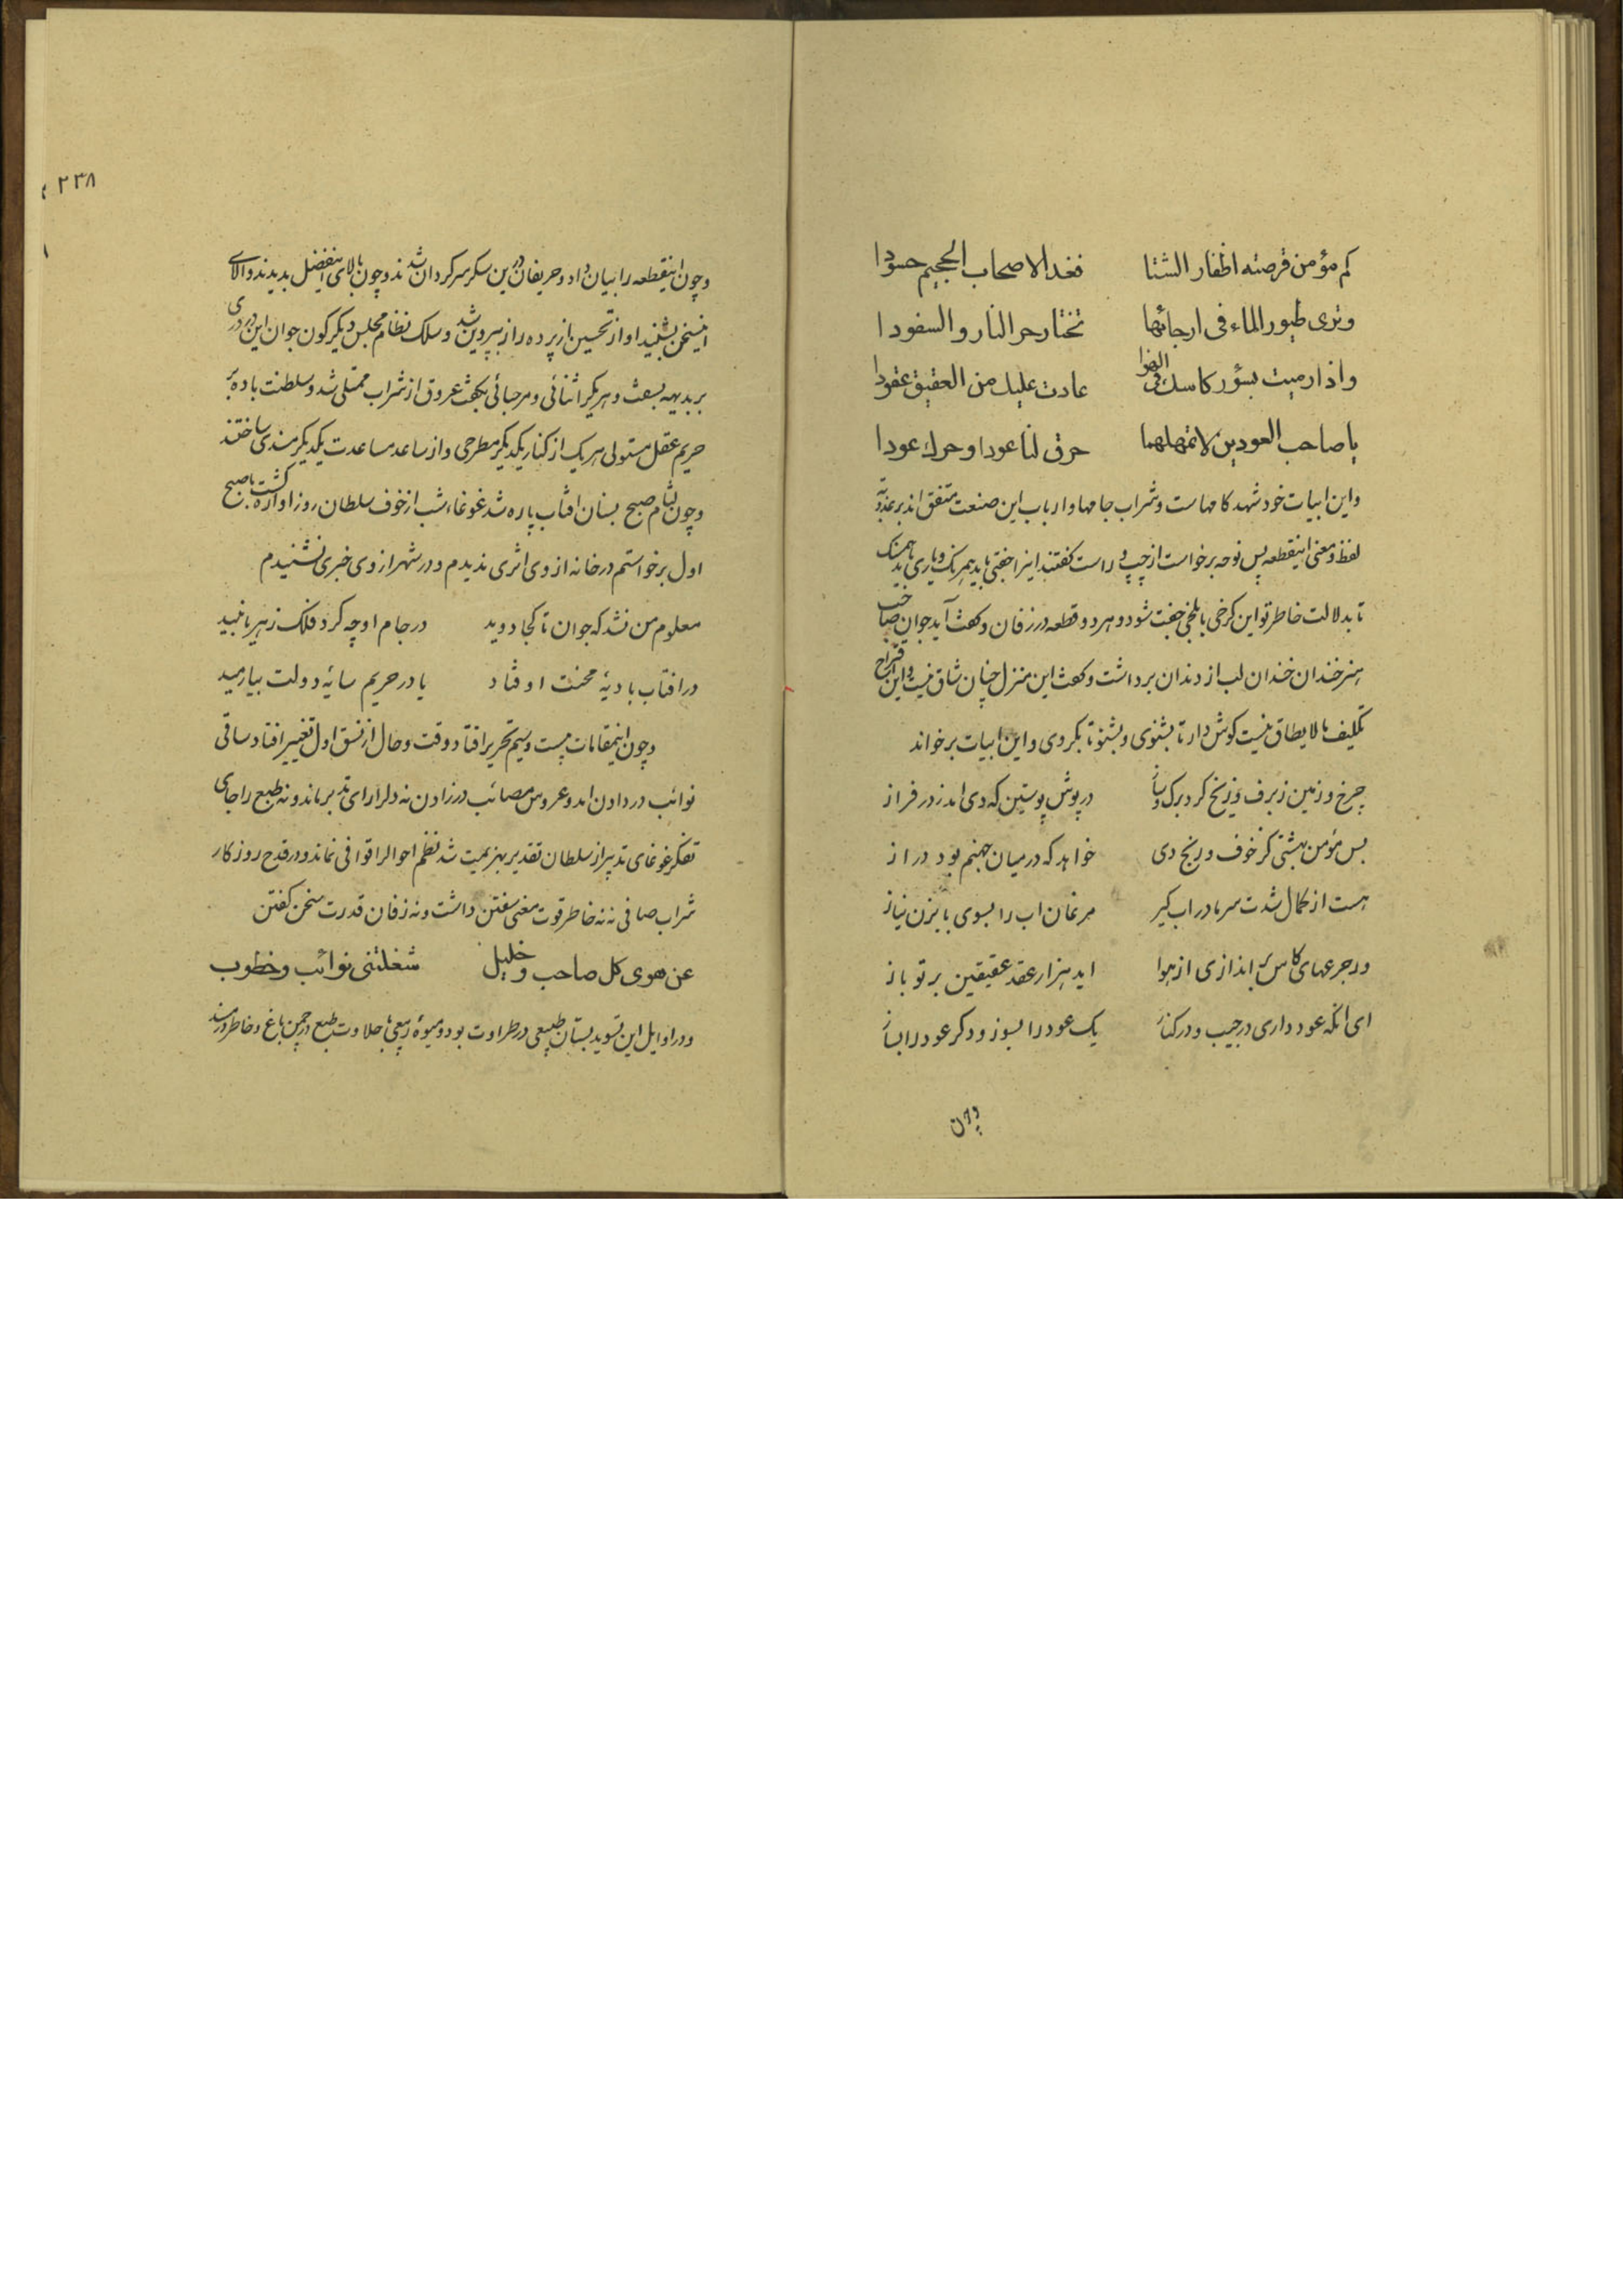 کم مؤمن قرصته اظفار الشتا فغدا لاصحاب الجحیم حسودا
وتری طیور الماء فی ارجائها تختار حر النار والسفودا
واذا رمیت بسؤر کاسك فی الهوا عادت علیك من العقیق عقودا
یا صاحب العودین لا تمهلهما حرق لنا عودا وحرك عودا
واین ابیات خود شهد کامهاست وشراب جامها وارباب این صنعت متفق اند بر عذوبة
لفظ ومعنی اینقطعه پس نوحه برخواست از چپ و راست گفتند اینرا جفتی باید همرنک ویاری باید همسنک
تا بدلالت خاطر تو این کرخی با بلخی جفت شود و هر دو قطعه در زفان وکفت آید جوان صاحب
هنر خندان خندان لب از دندان برداشت وکفت این منزل چنان شاق نیست واین اقتراح
تکلیف ما لا یطاق نیست کوش دار تا بشنوی وبشنو تا بکروی واین ابیات برخواند
چرخ و زمین ز برف و ز یخ کرد برک وساز در پوش پوستین که دی امد ز در فراز
بس مؤمن بهشتی کز خوف و رنج دی خواهد که در میان جهنم بود دراز
هست از کمال شدت سرما در اب کیر مرغان اب را بسوی بابزن نیاز
ور جرعهای کاس بر اندازی از هوا اید هزار عقد عقیقین بر تو باز
ای انکه عود داری در جیب و در کنار یک عود را بسوز و دکر عود را بساز
وچون
۲۳۸
وچون اینقطعه را بیان داد وحریفان درین سکر سرکردان شدند وچون بالای اینفضل بدیدند و الای
اینسخن بشنیدند اواز تحسین از پرده راز بیرون شد وسلک نظام مجلس دیکرکون جوان این دری
بر بدیهه بسفت وهر یکرا ثنائی ومرحبائی بکفت عروق از شراب ممتلی شد وسلطنت باده بر
حریم عقل مستولی هر یک از کنار یکدیکر مطرحی واز ساعد مساعدت یکدیکر مسندی ساختند
وچون لثام صبح بسنان افتاب پاره شد غوغاء شب از خوف سلطان روز اواره کشت با صبح
اول برخواستم در خانه از وی اثری ندیدم ودر شهر از وی خبری نشنیدم
معلوم من نشد که جوان تا کجا دوید در جام او چه کرد فلک زهر یا نبید
در افتاب بادیهٔ محنت اوفتاد یا در حریم سایهٔ دولت بیارمید
وچون اینمقامات بیست وسیم تحریر افتاد وقت وحال از نسق اول تغییر افتاد ساقی
نوائب در دادن امد وعروس مصائب در زادن نه دلرا رای تدبیر ماند ونه طبع را جای
تفکر غوغای تدبیر از سلطان تقدیر بهزیمت شد نظم احوالرا قوافی نماند و در قدح روزکار
شراب صافی نه نه خاطر قوت معنی سفتن داشت ونه زفان قدرت سخن کفتن
عن هوی کل صاحب وخلیل شغلتنی نوائب وخطوب
ودر اوایل این تسوید بستان طبیعی در طراوت بود ومیوهٔ ربیعی با حلاوت طبع در چمن باغ وخاطر در